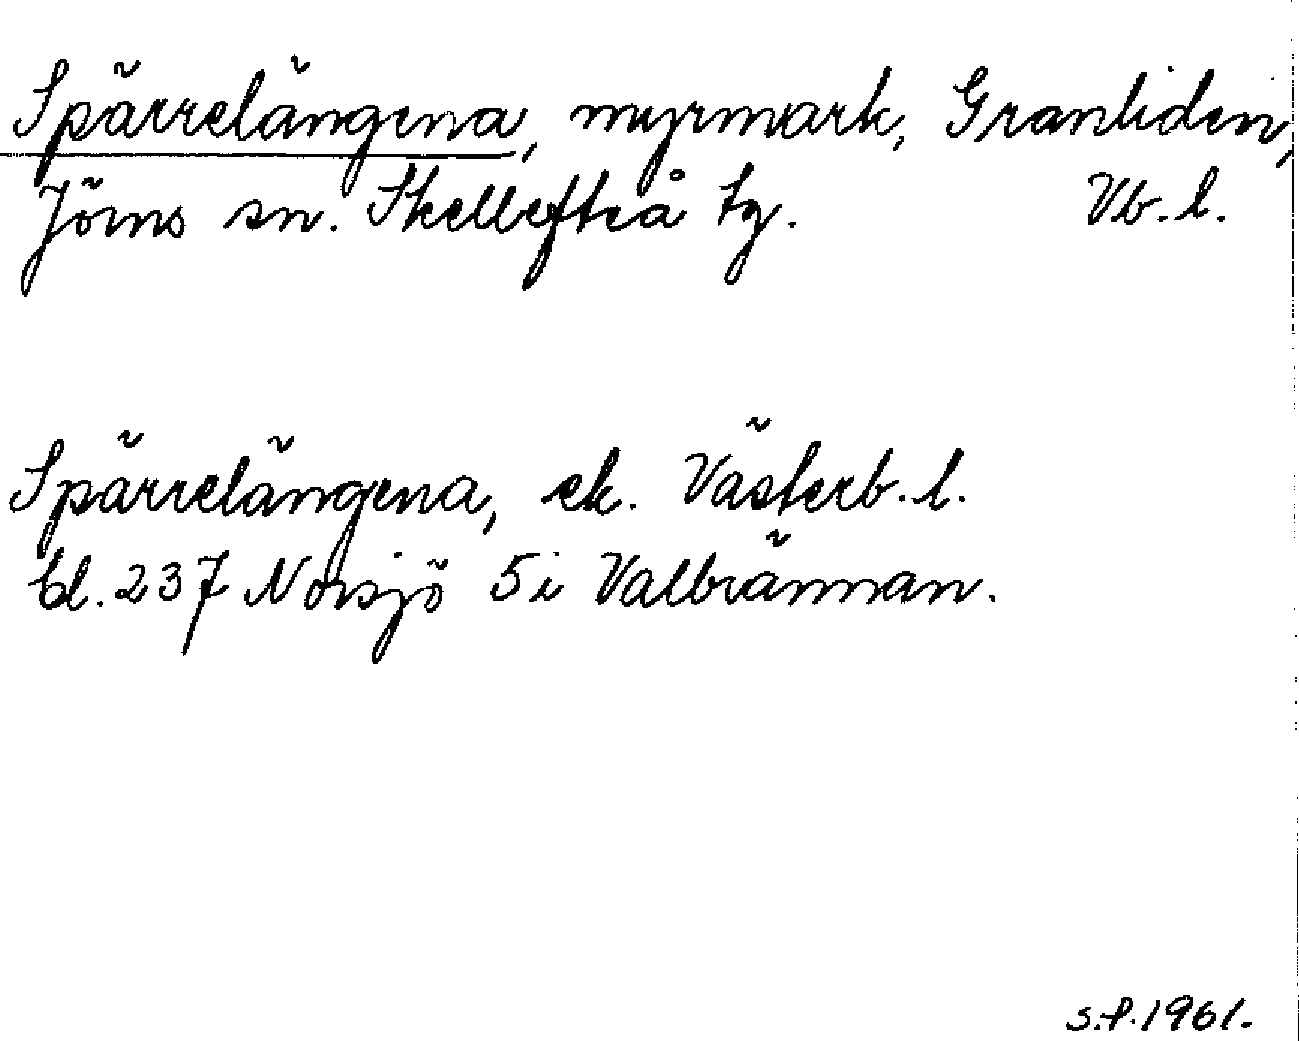 Spärrelängena, myrmark, Granliden,
Jörns sn. Skellefteå tg. Vb. l.
Spärrelängena, ek. Västerb. l.
bl. 237 Norsjö 5i Valbrännan.
s.f. 1961.